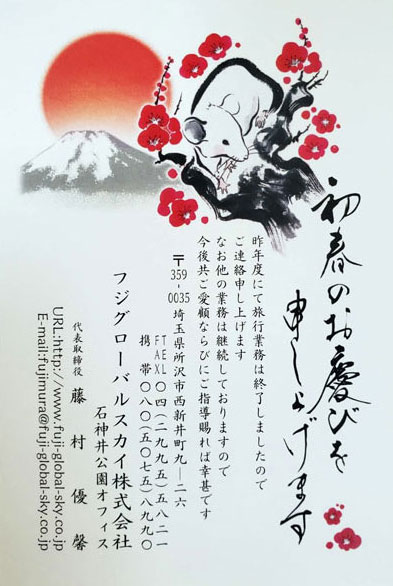 初春のお慶びを
申し上げます
昨年度にて旅行業務は終了しましたので
ご連絡申し上げます
なお他の業務は継続しておりますので
今後共ご愛顧ならびにご指導賜れば幸甚です
〒359-0035 埼玉県所沢市西新井町九―二六
TEL FAX 〇四(二九九五)五八二一
携帯 〇八〇(五〇七五)八九九〇
フジグローバルスカイ株式会社
石神井公園オフィス
代表取締役 藤村優馨
URL:http://www.fuji-global-sky.co.jp
E-mail:fujimura@fuji-global-sky.co.jp